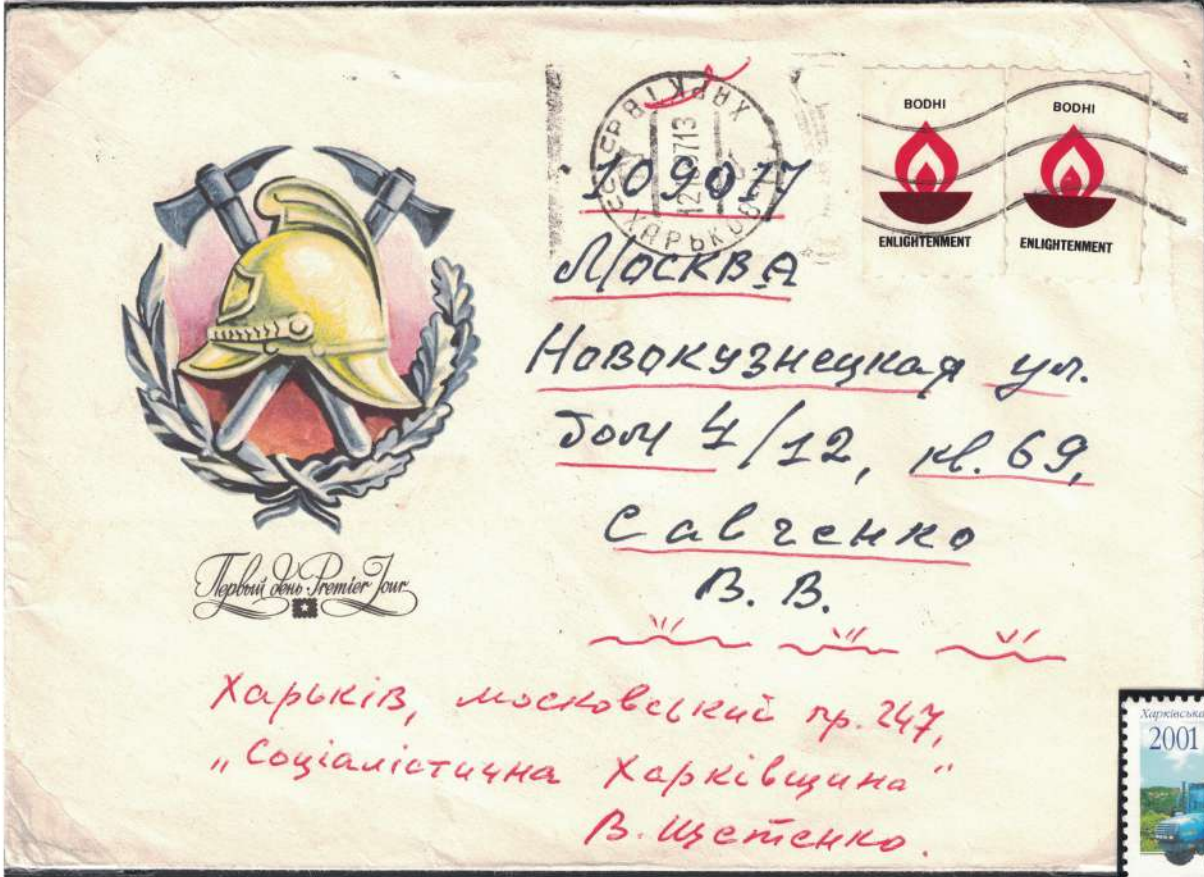 BODHI
ENLIGHTENMENT
BODHI
ENLIGHTENMENT
СССР ХАРКІВ
ХАРЬКОВ
109017
Москва
Новокузнецкая ул.
дом 4/12, кв. 69,
Савченко
В. В.
Первый день Premier Jour
Харькiв, московський пр. 247,
„Соціалістична Харківщина"
В. Щетенко.
Харківська
2001